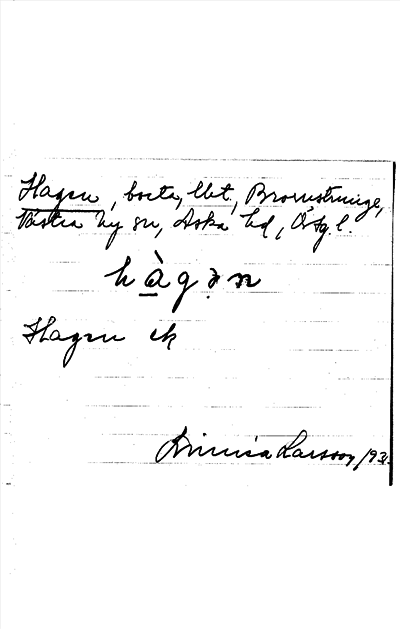 Hagen, borta, lht, Brornstninge,
Västra Ny sn, Aska hd, Östg. l.
hàgən
Hagen ek
Linnéa Larsson 193